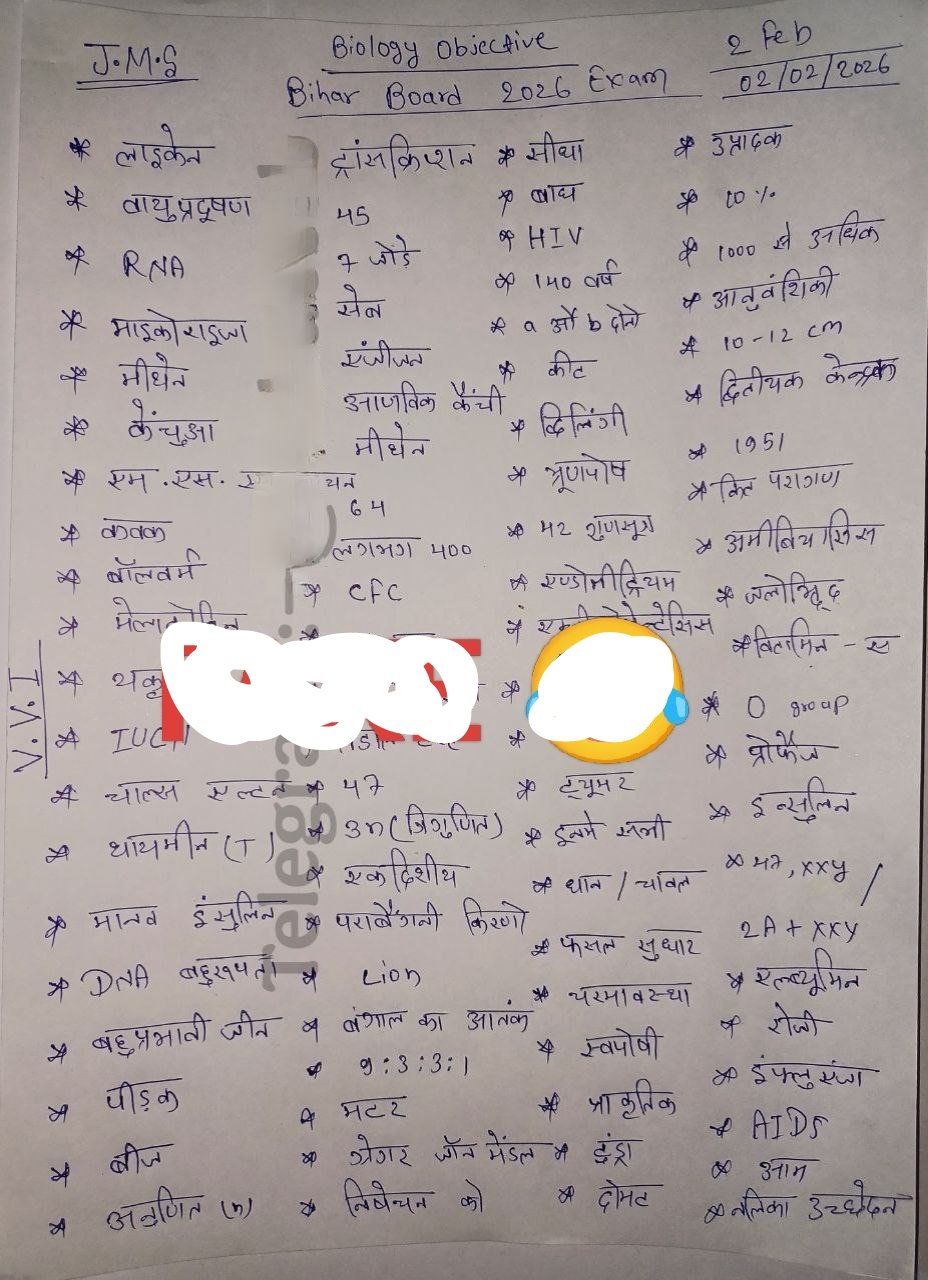 J.M.S
Biology Objective
2 Feb
Bihar Board 2026 Exam
02/02/2026
V.V.I
* लाइकेन
* वायुप्रदूषण
* RNA
* माइकोराइजा
* मीथेन
* केंचुआ
* एम.एस.
* कवक
* बॉलवर्म
* IUCN
* चार्ल्स एल्टन
* थायमीन (T)
* मानव इंसुलिन
* DNA बहुरूपता
* बहुप्रभावी जीन
* पीड़क
* बीज
* अगुणित (n)
ट्रांसक्रिप्शन
45
7 जोड़े
सेव
एंजीजन
आणविक कैंची
मीथेन
64
लगभग 400
* CFC
* 47
* 3n (त्रिगुणित)
* एकदिशीय
* पराबैंगनी किरणो
* Lion
* बंगाल का आतंक
* 9:3:3:1
* मटर
* ग्रेगर जॉन मेंडल
* निषेचन को
* सीधा
* बाघ
* HIV
* 140 वर्ष
* a औ b दोनो
* कीट
* द्विलिंगी
* भ्रूणपोष
* 42 गुणसूत्र
* एण्डोमीट्रियम
* ट्यूमर
* इनमे सभी
* धान / चावल
* फसल सुधार
* चरमावस्था
* स्वपोषी
* प्राकृतिक
* टुंड्रा
* दोमट
* उत्पादक
* 10%
* 1000 से अधिक
* आनुवंशिकी
* 10-12 cm
* द्वितीयक केन्द्रक
* 1951
* कित परागण
* अमीबियासिस
* जलोद्भिद
* विटामिन - ए
* O group
* प्रोफेज
* इन्सुलिन
* 47, xxy /
2A + xxy
* एल्ब्यूमिन
* रोजी
* इंफ्लुएंजा
* AIDS
* आम
* नलिका उच्छेदन
Telegra